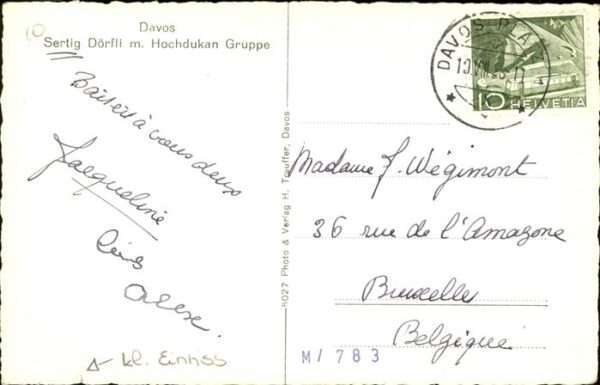 10
Davos
Sertig Dörfli m. Hochdukan Gruppe
à vous deux
Jacqueline
Alex.
kl. Einriss
8027 Photo & Verlag H. Trauffer, Davos
DAVOS PLA
10
HELVETIA
Madame J. Wégimont
36 rue de l'Amazone
Bruxelle
Belgique
M/ 783